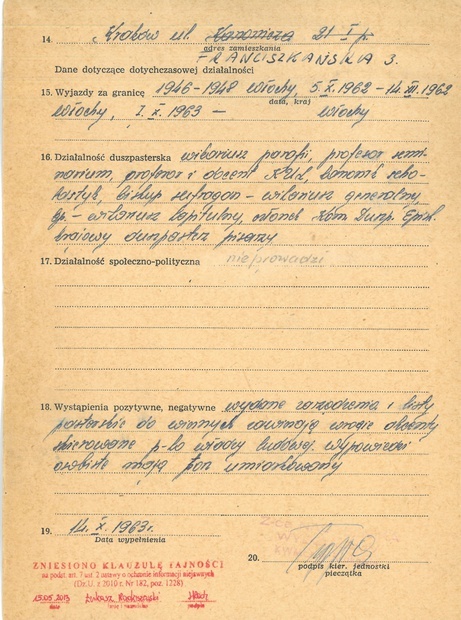 14. Kraków ul. Kanonicza 21 I p
adres zamieszkania
FRANCISZKAŃSKA 3.
Dane dotyczące dotychczasowej działalności
15. Wyjazdy za granicę 1946-1948 Włochy, 5.X.1962 - 14.XII.1962
data, kraj
Włochy, 7.X.1963 - Włochy
16. Działalność duszpasterska wikariusz parafii, profesor semi-
narium, profesor i docent KUL, kanonik
biskup sufragan - wikariusz generalny
- wikariusz kapitulny, członek Kom. Duszp. Episk.
krajowy duszpasterz
17. Działalność społeczno-polityczna nie prowadzi
18. Wystąpienia pozytywne, negatywne wydane zarządzenia i listy
pasterskie do wiernych zawierają wrogie akcenty
skierowane p-ko władzy ludowej. wypowiedzi
osobiste mają ton umiarkowany
19. 14.X.1963r.
Data wypełnienia
20.
podpis kier. jednostki
pieczątka
ZNIESIONO KLAUZULĘ TAJNOŚCI
na podst. art. 7 ust. 2 ustawy o ochronie informacji niejawnych
(Dz.U. z 2010 r. Nr 182, poz. 1228)
15.05.2013 Łukasz
data imię i nazwisko podpis